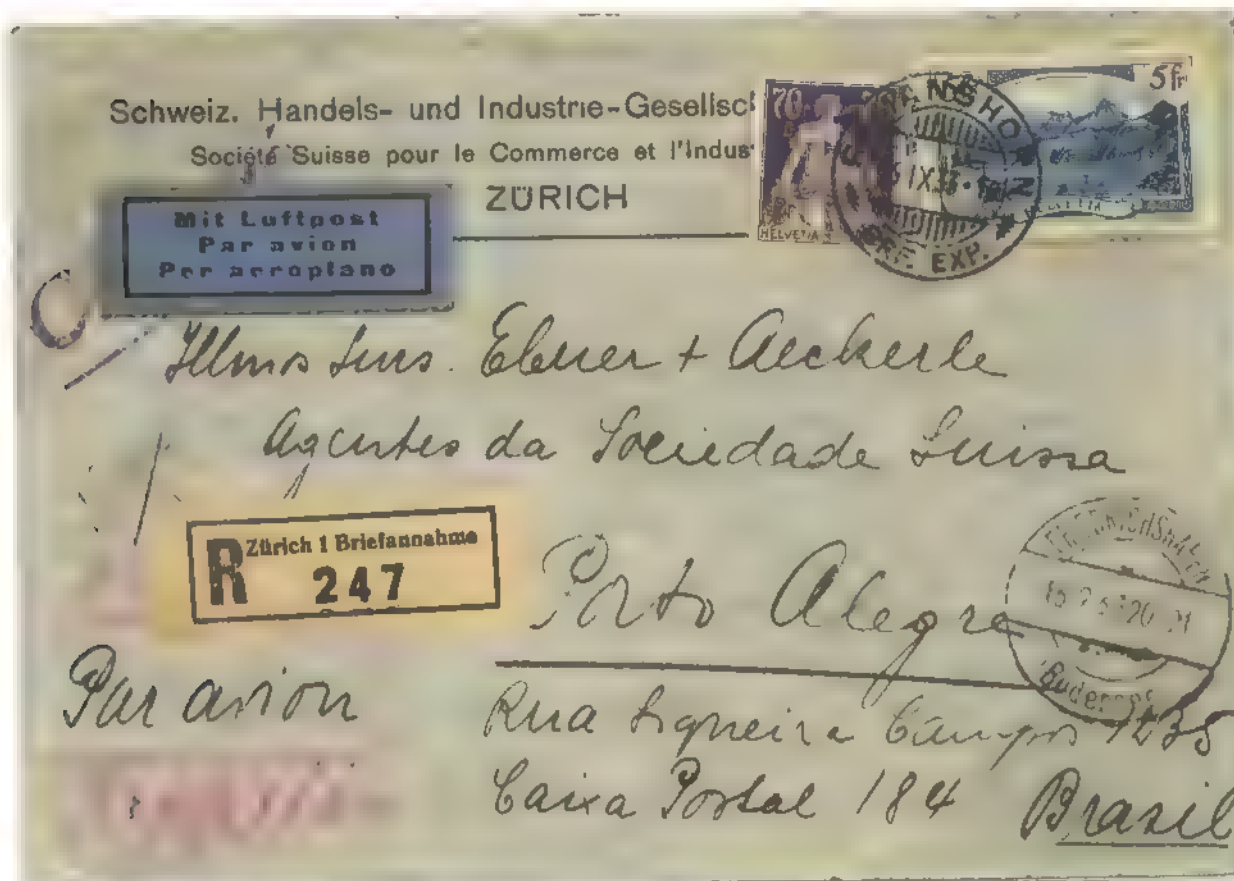 Schweiz. Handels- und Industrie-Gesellsc
Société Suisse pour le Commerce et l'Indus
ZÜRICH
70
HELVETIA
5 fr
EXP.
Mit Luftpost
Par avion
Per aeroplano
Illmos Snrs. Ebner + Aeckerle
Agentes da Sociedade Suissa
R Zürich 1 Briefannahme
247
Porto Alegre
FRIEDRICHSHAFEN
20-21
(Bodensee)
Par avion
Rua Siqueira Campos 1235
Caixa Postal 184 Brasil